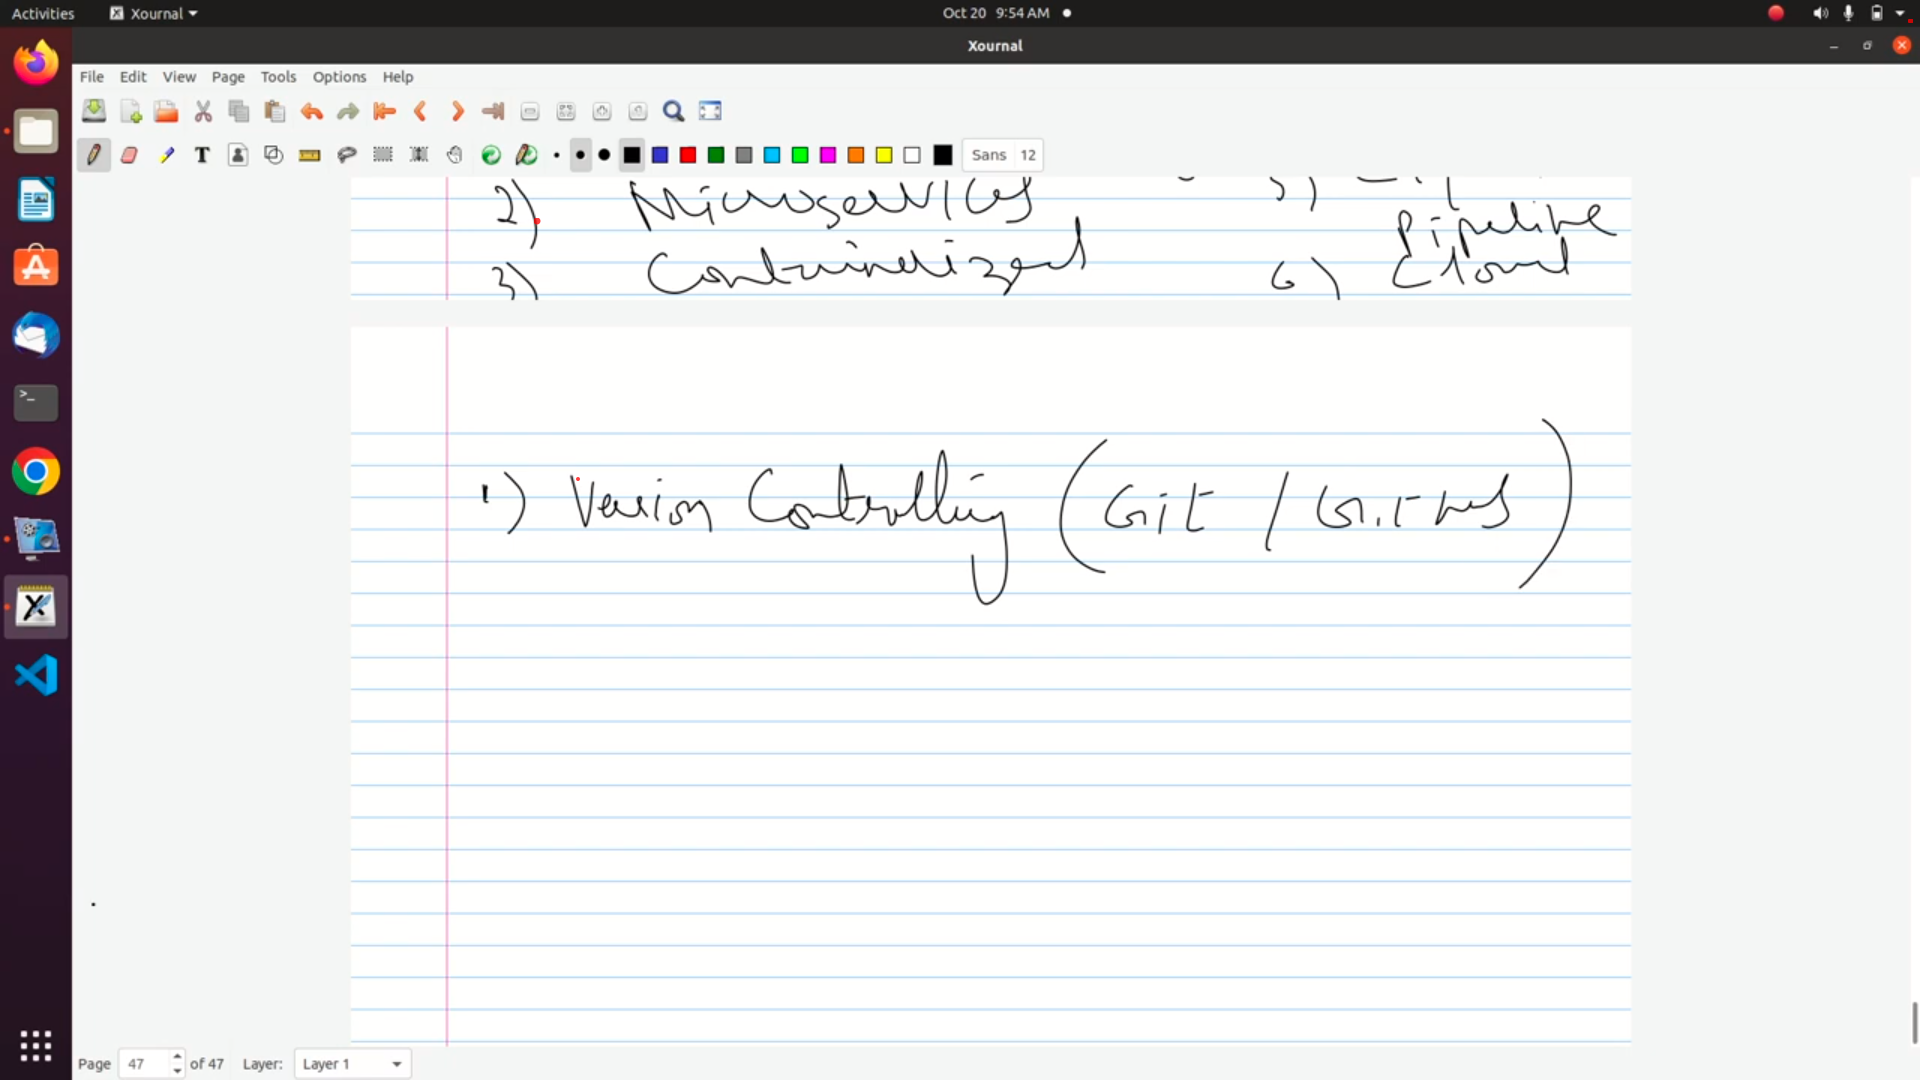 Activities Xournal Oct 20 9:54 AM
Xournal
File Edit View Page Tools Options Help
T Sans 12
2) Microservices 5)
Pipeline
3) Containerized 6) Cloud
1) Version Controlling (Git / GitHub)
Page 47 of 47 Layer: Layer 1